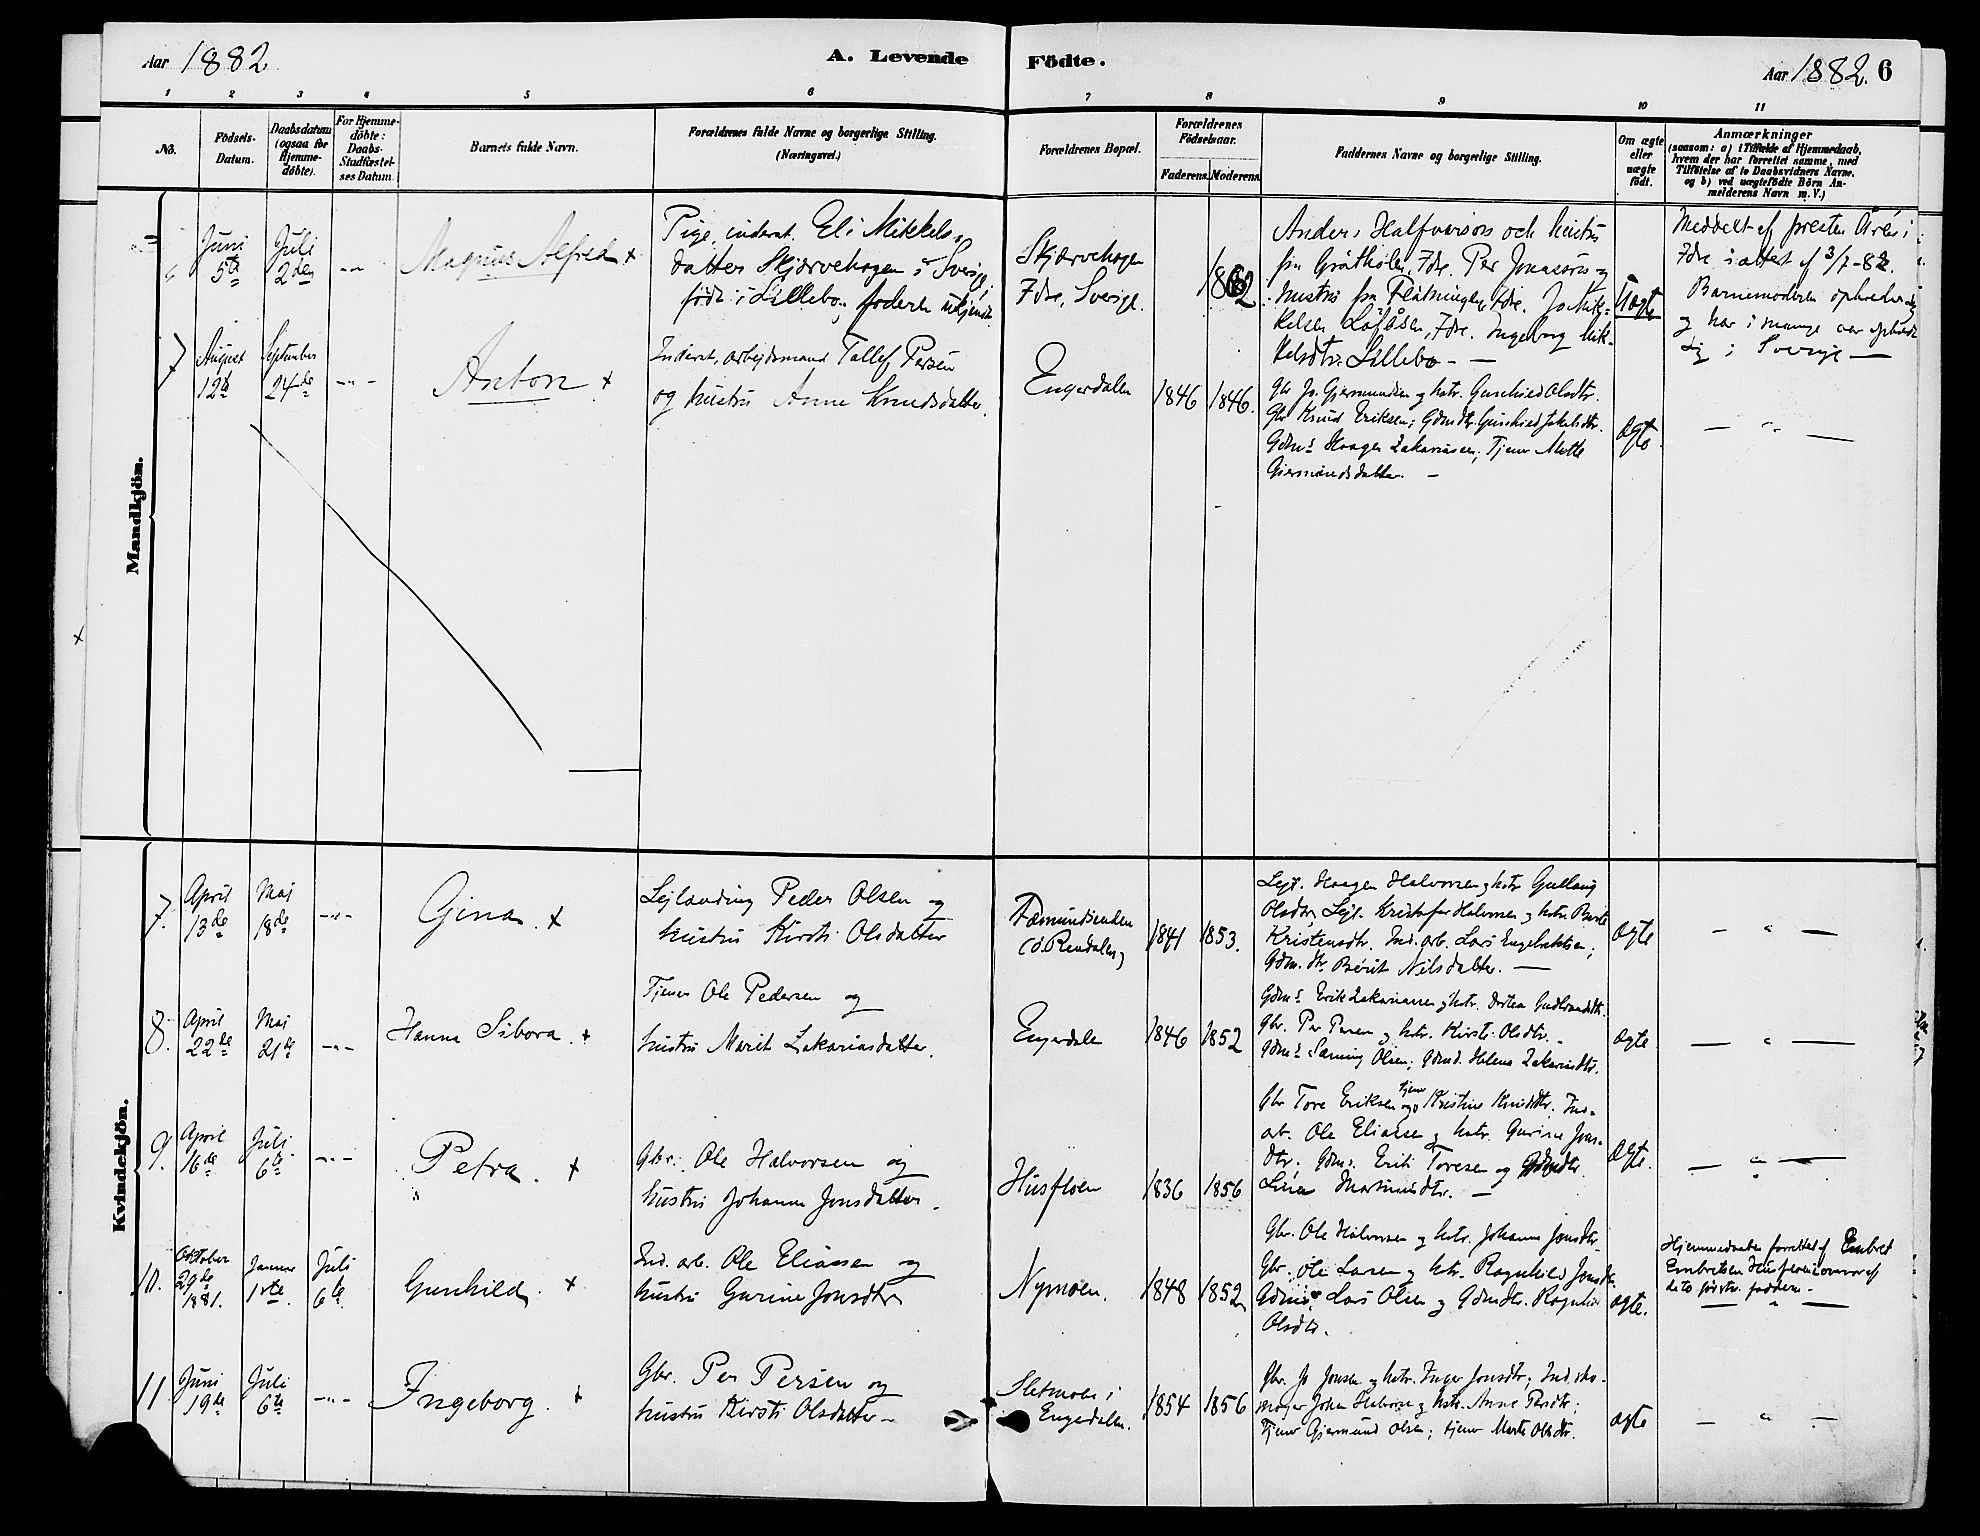 Aar 1882
A. Levende
Födte.
Aar 1882. 6
1 2 3 4 5 6 7 8 9 10 11
No.
Födsels-
Datum.
Daabsdatum
(ogsaa for
Hjemme-
döbte).
For Hjemme-
döbte:
Daabs-
Stadfæstel-
ses Datum.
Barnets fulde Navn.
Forældrenes fulde Navne og borgerlige Stilling.
(Næringsvei.)
Forældrenes Bopæl.
Forældrenes
Födselsaar.
Faderens. Moderens.
Faddernes Navne og borgerlige Stilling.
Om ægte
eller
uægte
födt.
Anmærkninger
(saasom: a) i Tilfælde af Hjemmedaab,
hvem der har forrettet samme, med
Tilföielse af to Daabsvidners Navne,
og b) ved uægtefödte Börn An-
melderens Navn m. V.)
Mandkjön.
Juni
5te
Juli
2den
Magnus Alfred +
Pige, inderst. Eli Mikkels-
datter Skjærvehagen i Sverige,
födt i Lillebo; faderen
Skjærvehagen
Idre, Sverige.
1862
Anders Halfvarson och hustru
frn Gröthölen, Idre. Per Jonasson og
hustru frn Flötningen, Idre. Jo Mik-
kelsen Löfåsen, Idre. Ingeborg Mik-
kelsdtr. Lillebo - —
Uægte
Meddelt af presten i
Idre i attest af 3/7-82.
Barnemoderen opholder sig
og har i mange aar opholdt
sig i Sverige —
7
August
12te
September
24de
Anton +
Inderst, arbejdsmand Tollef Persen
og hustru Anne Knudsdatter.
Engerdalen
1846 1846.
Gbr. Jo Gjermundsen og hstr. Gunhild Olsdtr.
Gbr Knud Eriksen; Gdmdtr. Gunhild Jakobsdtr.
Gdms. Haagen Zakariasen; Tjener Mette
Gjermundsdatter. —
ægte
— " —
Kvindekjön.
7.
April
13de
Maj
18de
Gina. +
Lejlænding Peder Olsen og
hustru Kirsti Olsdatter
Fæmundsenden
(Ö. Rendalen)
1841 1853.
Lejl. Haagen Halvorsen og hstr Gullaug
Olsdtr, Lejl. Kristofer Halvorsen og hstr.
Kristensdtr. Ind. arb. Lars Engebretsen;
Gdm. dtr. Börit Nilsdatter. —
ægte
— " —
8.
April
22de
Maj
21de
Hanna Sibora. +
Tjener Ole Pedersen og
hustru Marit Zakariasdatter.
Engerdalen
1846 1852
Gdms Erik Zakariassen og hstr. Dortea Gudbrandsdtr.
Gbr. Per Persen og hstr. Kirsti Olsdtr.
Gdms Sæming Olsen; Gdmd. Helena Zakariasdtr.
ægte
— " —
9.
April
16de
Juli
6te
Petra. +
Gbr. Ole Halvorsen og
hustru Johanna Jonsdatter.
Husfloen
1836 1856
Gbr Tore Eriksen og tjener Kristine Knudsdtr. Ind-
arb. Ole Eliasen og hstr. Gurine Jons-
dtr; Gdms. Erik Toresen og Gdmdtr
Martinusdtr. —
ægte.
— " —
10.
Oktober
29de
1881.
Januar
1ste
Juli
6te
Gunhild. +
Ind. arb. Ole Eliasen og
hustru Gurine Jonsdtr
Nymoen.
1848 1852
Gbr. Ole Halvorsen og hstr. Johanna Jonsdtr.
Gbr. Ole Larsen og hstr. Ragnhild Jonsdtr.
Gdms. Lars Olsen og Gdmdtr. Ragnhild
Olsdtr.
ægte.
Hjemmedaaben forrettet af Embret
Embretsen Husfloen i overvær af
de to förste faddere.
— " —
11
Juni
19de
Juli
6te
Ingeborg. +
Gbr. Per Persen og
hustru Kirsti Olsdatter -
Sletmoen i
Engerdalen.
1854 1856
Gbr. Jo Jonsen og hstr. Inger Jonsdtr; Ind. sko-
mager Johan og hstr. Anne Persdtr;
Tjener Gjermund Olsen; tjener Marte Olsdtr.
ægte
— " —